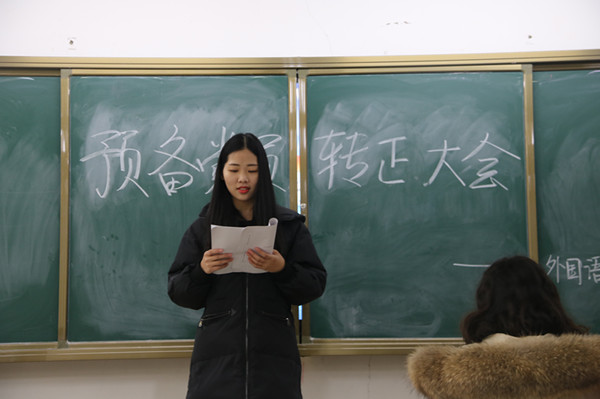 预备党员转正大会
—外国语